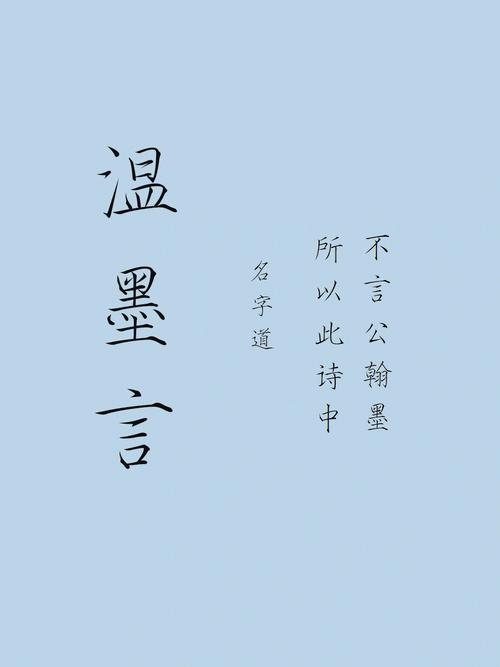 不言公翰墨
所以此诗中
名字道
温墨言